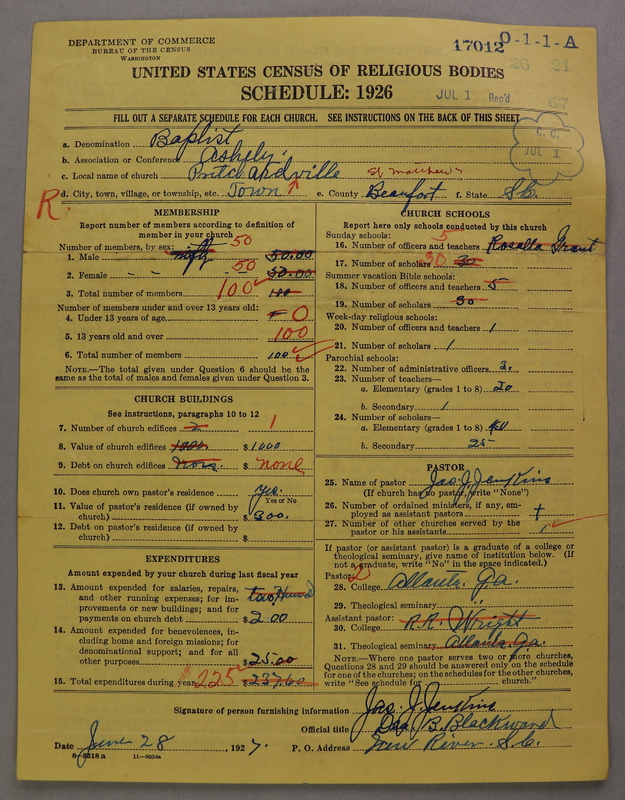 DEPARTMENT OF COMMERCE
BUREAU OF THE CENSUS
WASHINGTON
17012 O-1-1-A
26 21
UNITED STATES CENSUS OF RELIGIOUS BODIES
SCHEDULE: 1926
JUL 1 Rec'd 67
FILL OUT A SEPARATE SCHEDULE FOR EACH CHURCH. SEE INSTRUCTIONS ON THE BACK OF THIS SHEET
C.C.
JUL 1
a. Denomination Baptist
b. Association or Conference Ashely
c. Local name of church Pritcardville St Matthews
d. City, town, village, or township, etc. Town e. County Beaufort f. State S.C.
R.
MEMBERSHIP
Report number of members according to definition of
member in your church
Number of members, by sex:
1. Male fifty 50 50.00
2. Female 50 50.00
3. Total number of members 100 100
Number of members under and over 13 years old:
4. Under 13 years of age 0
5. 13 years old and over 100
6. Total number of members 100
NOTE.—The total given under Question 6 should be
the same as the total of males and females given under Question 3.
CHURCH BUILDINGS
See instructions, paragraphs 10 to 12
7. Number of church edifices 2 1
8. Value of church edifices 1000 $ 1000
9. Debt on church edifices None $ none
10. Does church own pastor's residence yes.
Yes or No
11. Value of pastor's residence (if owned by
church) $ 300.
12. Debt on pastor's residence (if owned by
church) $
EXPENDITURES
Amount expended by your church during last fiscal year
13. Amount expended for salaries, repairs,
and other running expenses; for im-
provements or new buildings; and for
payments on church debt two Hund
$ 200
14. Amount expended for benevolences, in-
cluding home and foreign missions; for
denominational support; and for all
other purposes $ 25.00
15. Total expenditures during year $225 $ 237.60
CHURCH SCHOOLS
Report here only schools conducted by this church
Sunday schools:
16. Number of officers and teachers 5 Rosalla Grant
17. Number of scholars 30 30
Summer vacation Bible schools:
18. Number of officers and teachers 5
19. Number of scholars 30
Week-day religious schools:
20. Number of officers and teachers 1
21. Number of scholars 1
Parochial schools:
22. Number of administrative officers 2.
23. Number of teachers—
a. Elementary (grades 1 to 8) 20
b. Secondary 1
24. Number of scholars—
a. Elementary (grades 1 to 8)
b. Secondary 25
PASTOR
25. Name of pastor Jas. J. Jenkins
(If church has no pastor, write "None")
26. Number of ordained ministers, if any, em-
ployed as assistant pastors
27. Number of other churches served by the
pastor or his assistants 1
If pastor (or assistant pastor) is a graduate of a college or
theological seminary, give name of institution below. (If
not a graduate, write "No" in the space indicated.)
Pastor:
28. College Atlanta. Ga.
29. Theological seminary
Assistant pastor:
30. College R.R. Wright
31. Theological seminary Atlanta. Ga.
NOTE.—Where one pastor serves two or more churches,
Questions 28 and 29 should be answered only on the schedule
for one of the churches; on the schedules for the other churches,
write "See schedule for church."
Signature of person furnishing information Jas. J. Jenkins
Official title B. Blackward
Date June 28, 1927. P. O. Address New River. S.C.
8-5518 a 11-9664a